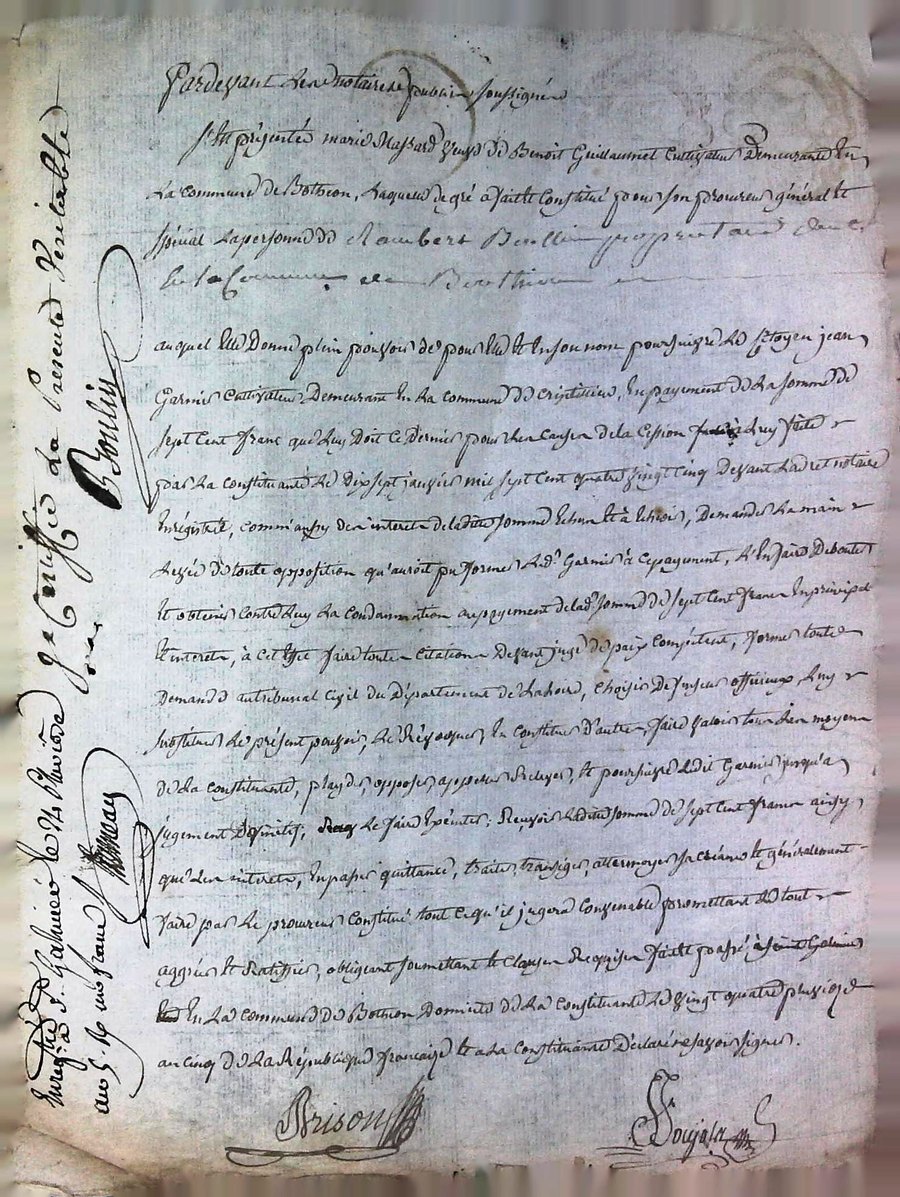 Pardevant les notaires publics soussignés
S'est présentée marie Massard veuve de Benoit Guillaumet Cultivateur Demeurante En
La Commune de Bothéon, Laquelle de gré a fait et Constitué pour son procureur général et
spécial La personne de Rambert Boullin propriétaire
de la Commune de Bouthéon
auquel Elle Donne plein pouvoir de pour Elle et En son nom poursuivre Le Citoyen jean
Garnier Cultivateur Demeurant En La commune de En payement de La somme de
sept Cent franc que Luy Doit ce Dernier pour Les Causes de la Cession a Luy faite
par La constituante Le Dix sept janvier mil sept Cent quatre vingt Cinq Devant notaire
Enregistré, comm'aussy des interets de ladite somme Echus et à Echoir, Demander La main
Levée de toute opposition qu'auroit pu former Led. Garnier à ce payement, L'En faire Debouter
et obtenir Contre Luy La Condamnation au payement de lad. somme de sept Cent francs En principal
et interets, à cet Effet faire toutes Citations Devant juge de paix Compétent, former toutes
Demandes au tribunal Civil du Département de La Loire, Choisir Defenseur officieux, Luy
substituer Le présent pouvoir, Le Révoquer, En Constituer D'autres, faire valoir tous Les moyens
de La constituante, playder, opposer, appeller, et poursuivre Ledit Garnier jusqu'à
jugement Définitif, Le faire Exécuter; Recevoir Ladite somme de sept Cent francs ainsy
que Les interets, En passer quittance, traiter, transiger, attermoyer sa créance et généralement
faire par Le procureur Constitué tout ce qu'il jugera Convenable promettant Le tout
aggréer et Ratiffier, obligeant soumettant et Clauses Requises fait et passé
En La Commune de Bothéon Domicile de La Constituante Le vingt quatre pluviose
an Cinq de La République francaise et a La Constituante Déclaré ne savoir signer.
Brison
Je Certifie La Presente Veritable
Boulin
Enregistré à St. Galmier le 24 Pluviose
an 5. un franc